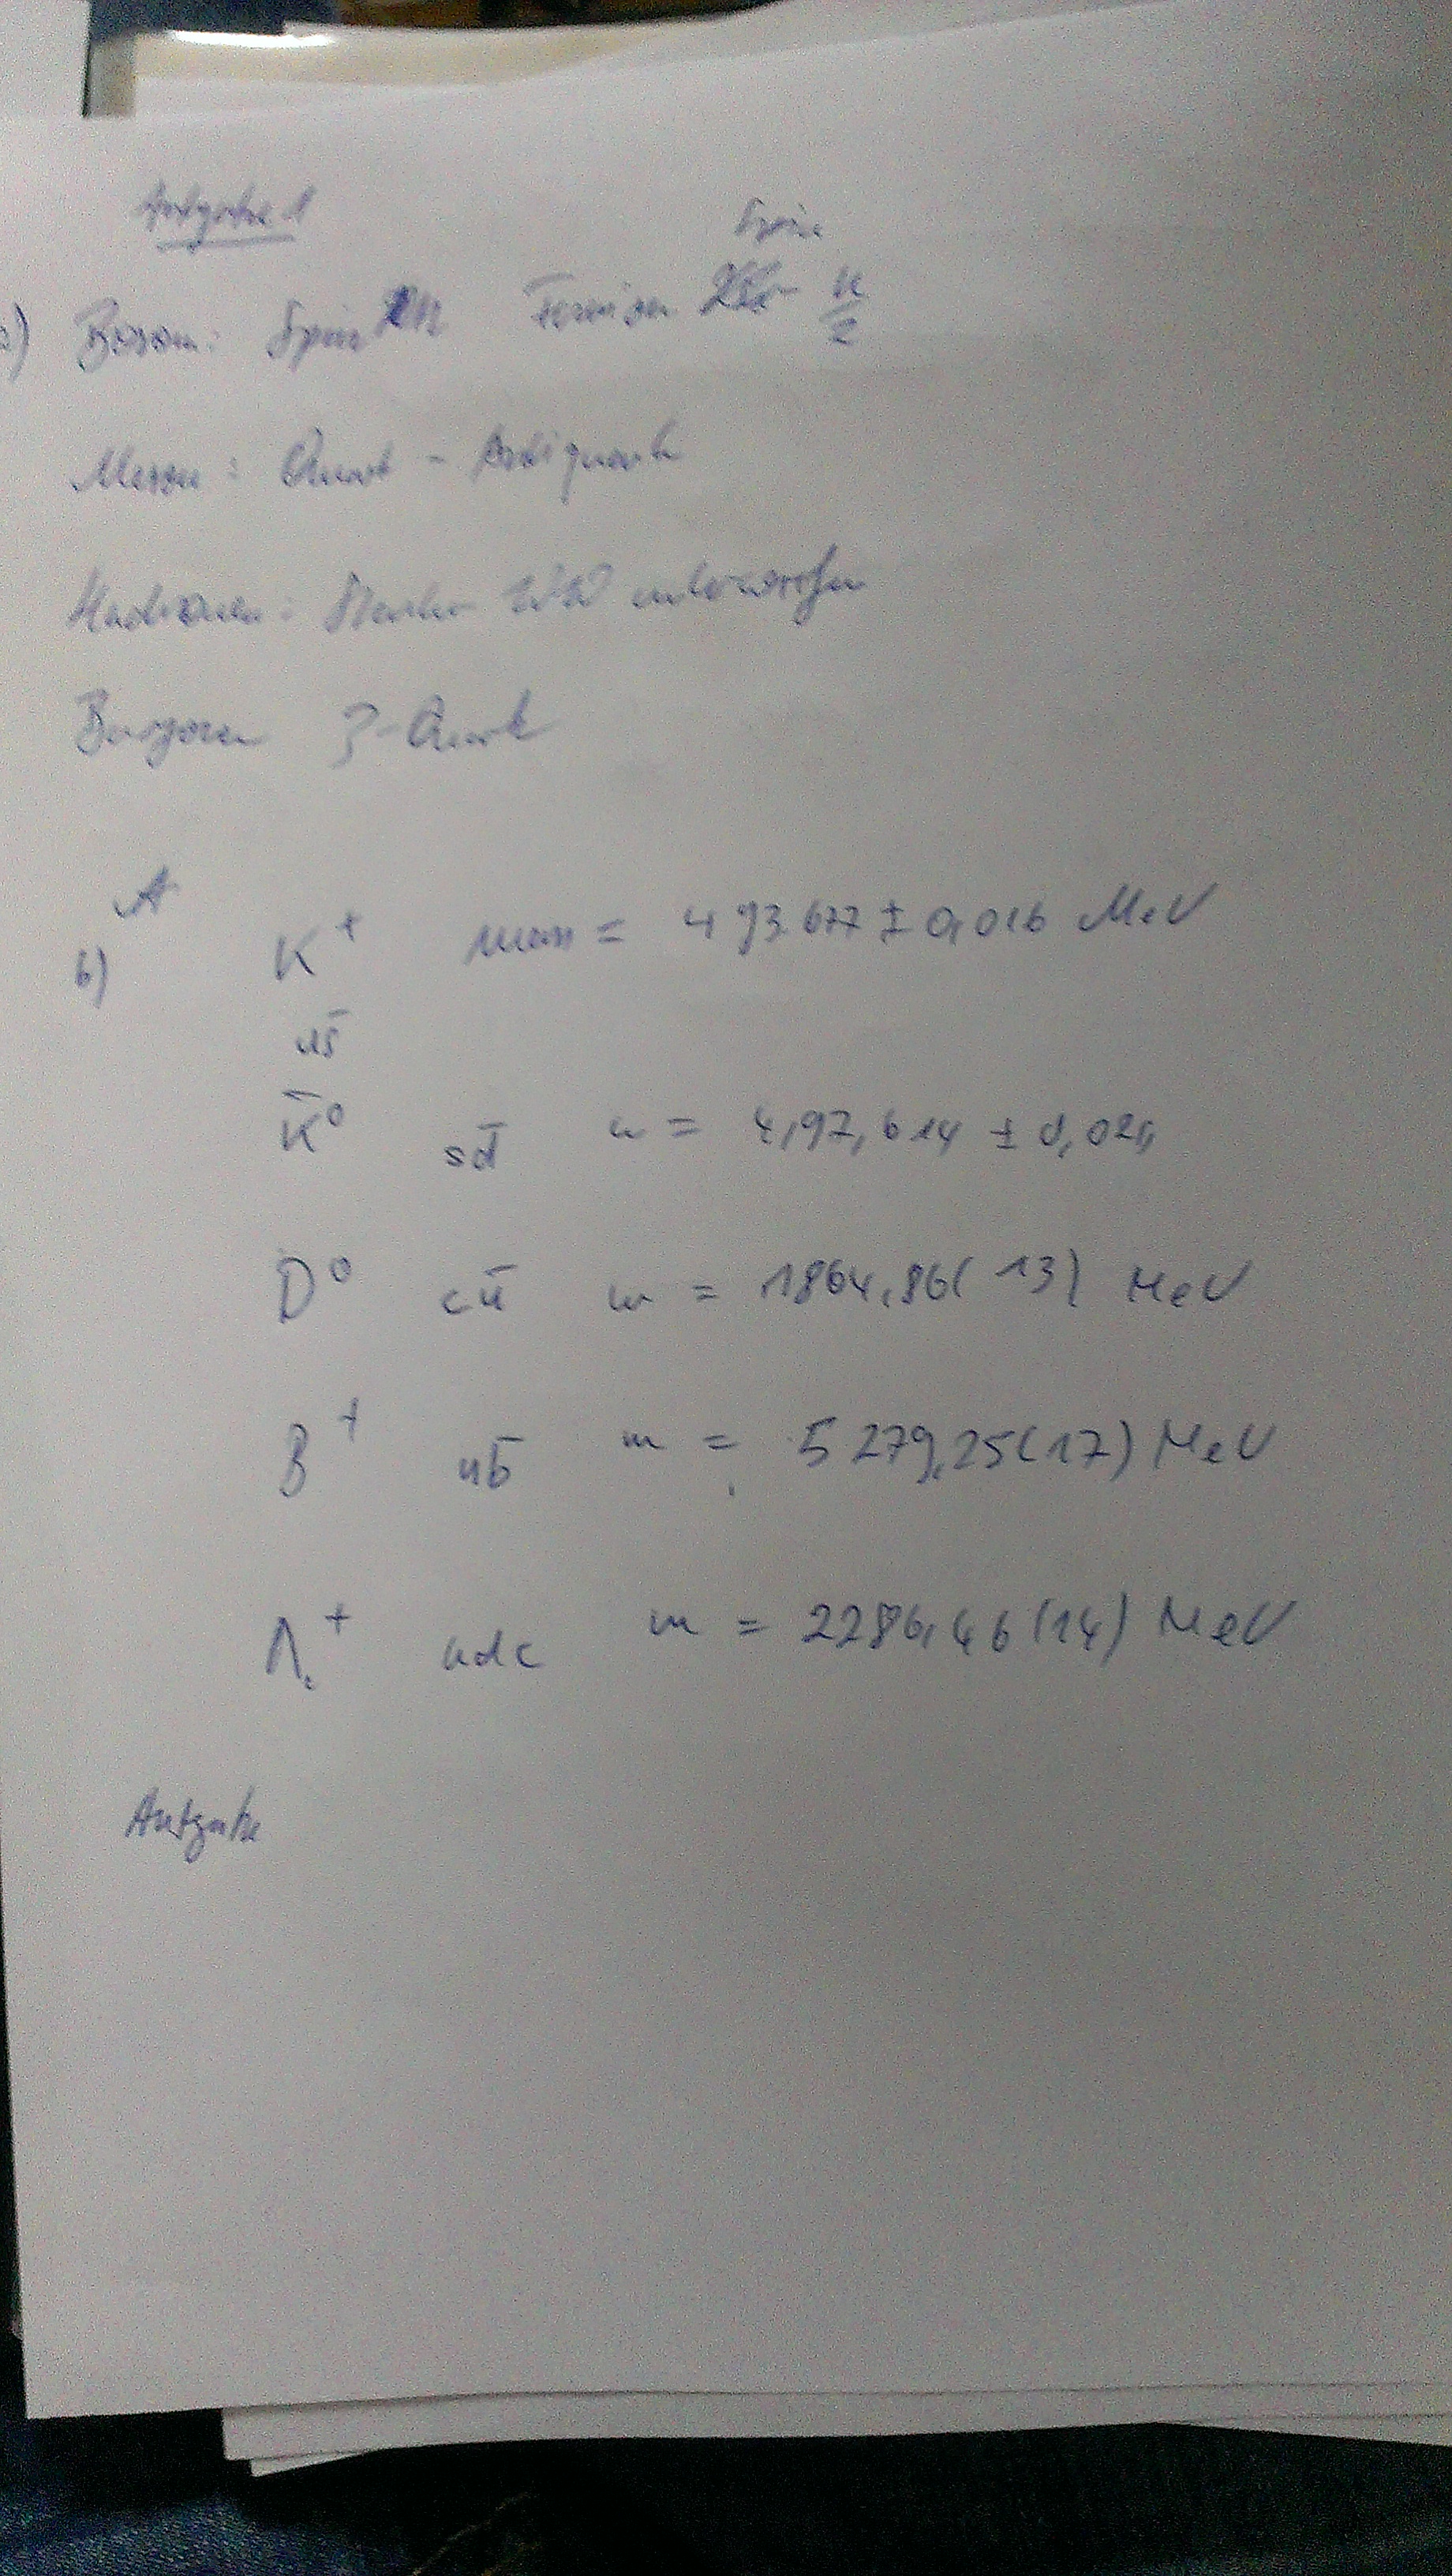 Aufgabe 1
Spin
a) Boson: Spin n Fermion n/2
Meson: Quark - Antiquark
Hadronen: Starker WW unterworfen
Baryonen 3-Quark
A
b) K⁺ mass = 493.677 ± 0,016 MeV
us̄
K̄⁰ sd̄ m = 4,97,614 ± 0,024
D⁰ cū m = 1864,86(13) MeV
B⁺ ub̄ m = 5279,25(17) MeV
Λc⁺ udc m = 2286,46(14) MeV
Aufgabe